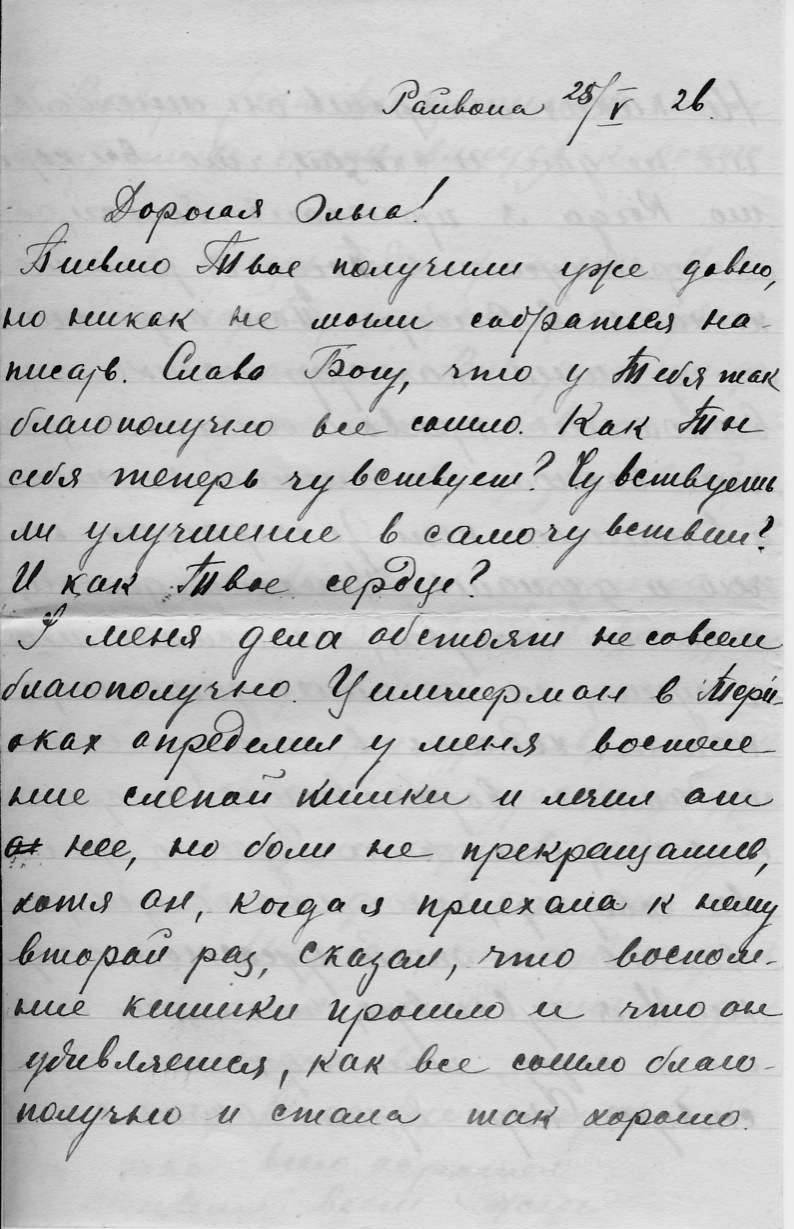 Райвола 28/V 26.
Дорогая Ольга!
Письмо Твое получили уже давно,
но никак не могли собраться на-
писать. Слава Богу, что у Тебя так
благополучно все сошло. Как Ты
себя теперь чувствуешь? Чувствуешь
ли улучшение в самочувствии?
И как Твое сердце?
У меня дела обстоят не совсем
благополучно. Циммерман в Терио-
ках определил у меня воспале-
ние слепой кишки и лечил от
нее, но боли не прекращались,
хотя он, когда я приехала к нему
второй раз, сказал, что воспале-
ние кишки прошло и что он
удивляется, как все сошло благо-
получно и стало так хорошо.